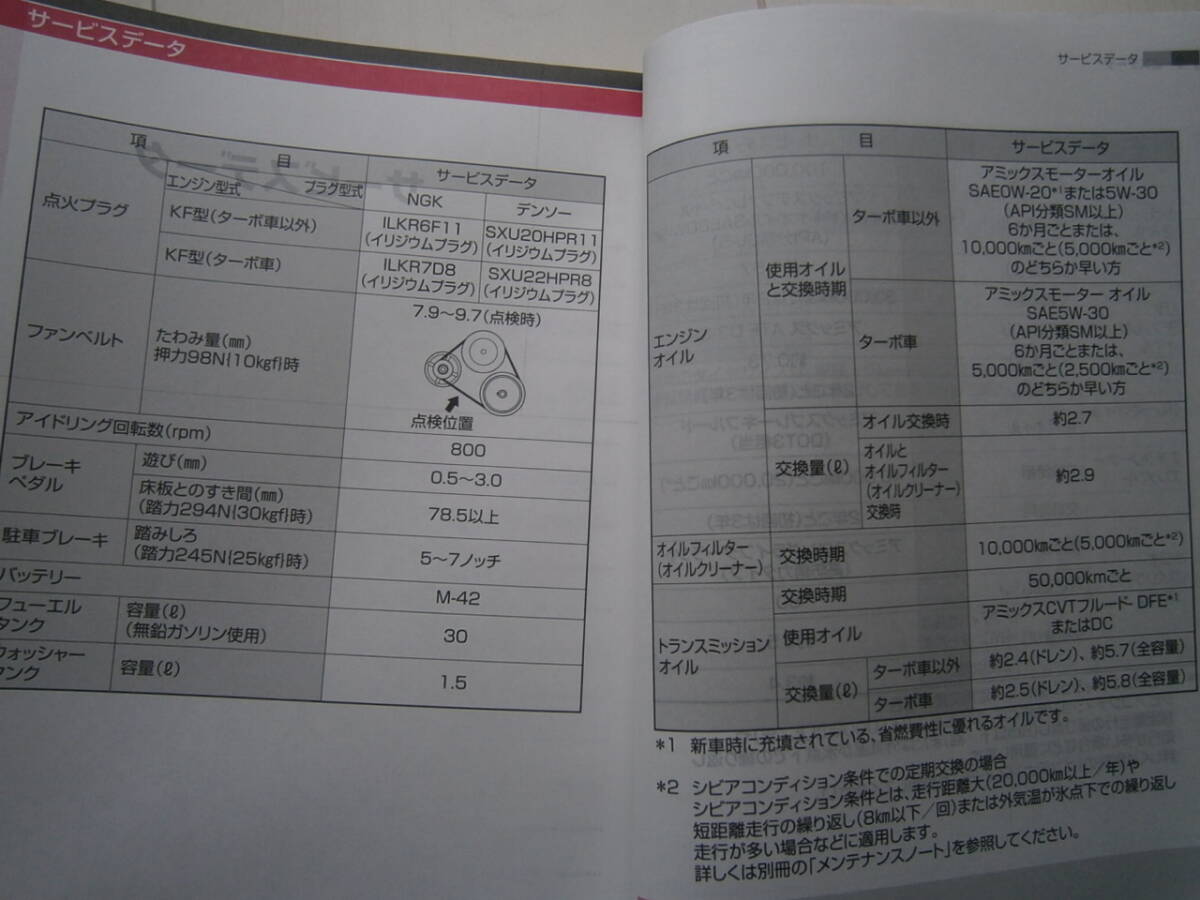 サービスデータ
項 目
サービスデータ
点火プラグ
エンジン型式 プラグ型式
NGK
デンソー
KF型(ターボ車以外)
ILKR6F11
(イリジウムプラグ)
SXU20HPR11
(イリジウムプラグ)
KF型(ターボ車)
ILKR7D8
(イリジウムプラグ)
SXU22HPR8
(イリジウムプラグ)
ファンベルト
たわみ量(㎜)
押力98N{10kgf}時
7.9～9.7(点検時)
点検位置
アイドリング回転数(rpm)
800
ブレーキ
ペダル
遊び(㎜)
0.5～3.0
床板とのすき間(㎜)
(踏力294N{30kgf}時)
78.5以上
駐車ブレーキ
踏みしろ
(踏力245N{25kgf}時)
5～7ノッチ
バッテリー
M-42
フューエル
タンク
容量(ℓ)
(無鉛ガソリン使用)
30
ウォッシャー
タンク
容量(ℓ)
1.5
サービスデータ
項 目
サービスデータ
エンジン
オイル
使用オイル
と交換時期
ターボ車以外
アミックスモーターオイル
SAE0W-20*1または5W-30
(API分類SM以上)
6か月ごとまたは、
10,000㎞ごと(5,000㎞ごと*2)
のどちらか早い方
ターボ車
アミックスモーター オイル
SAE5W-30
(API分類SM以上)
6か月ごとまたは、
5,000㎞ごと(2,500㎞ごと*2)
のどちらか早い方
交換量(ℓ)
オイル交換時
約2.7
オイルと
オイルフィルター
(オイルクリーナー)
交換時
約2.9
オイルフィルター
(オイルクリーナー)
交換時期
10,000㎞ごと(5,000㎞ごと*2)
トランスミッション
オイル
交換時期
50,000kmごと
使用オイル
アミックスCVTフルード DFE*1
またはDC
交換量(ℓ)
ターボ車以外
約2.4(ドレン)、約5.7(全容量)
ターボ車
約2.5(ドレン)、約5.8(全容量)
*1 新車時に充填されている、省燃費性に優れるオイルです。
*2 シビアコンディション条件での定期交換の場合
シビアコンディション条件とは、走行距離大(20,000㎞以上／年)や
短距離走行の繰り返し(8㎞以下／回)または外気温が氷点下での繰り返し
走行が多い場合などに適用します。
詳しくは別冊の「メンテナンスノート」を参照してください。